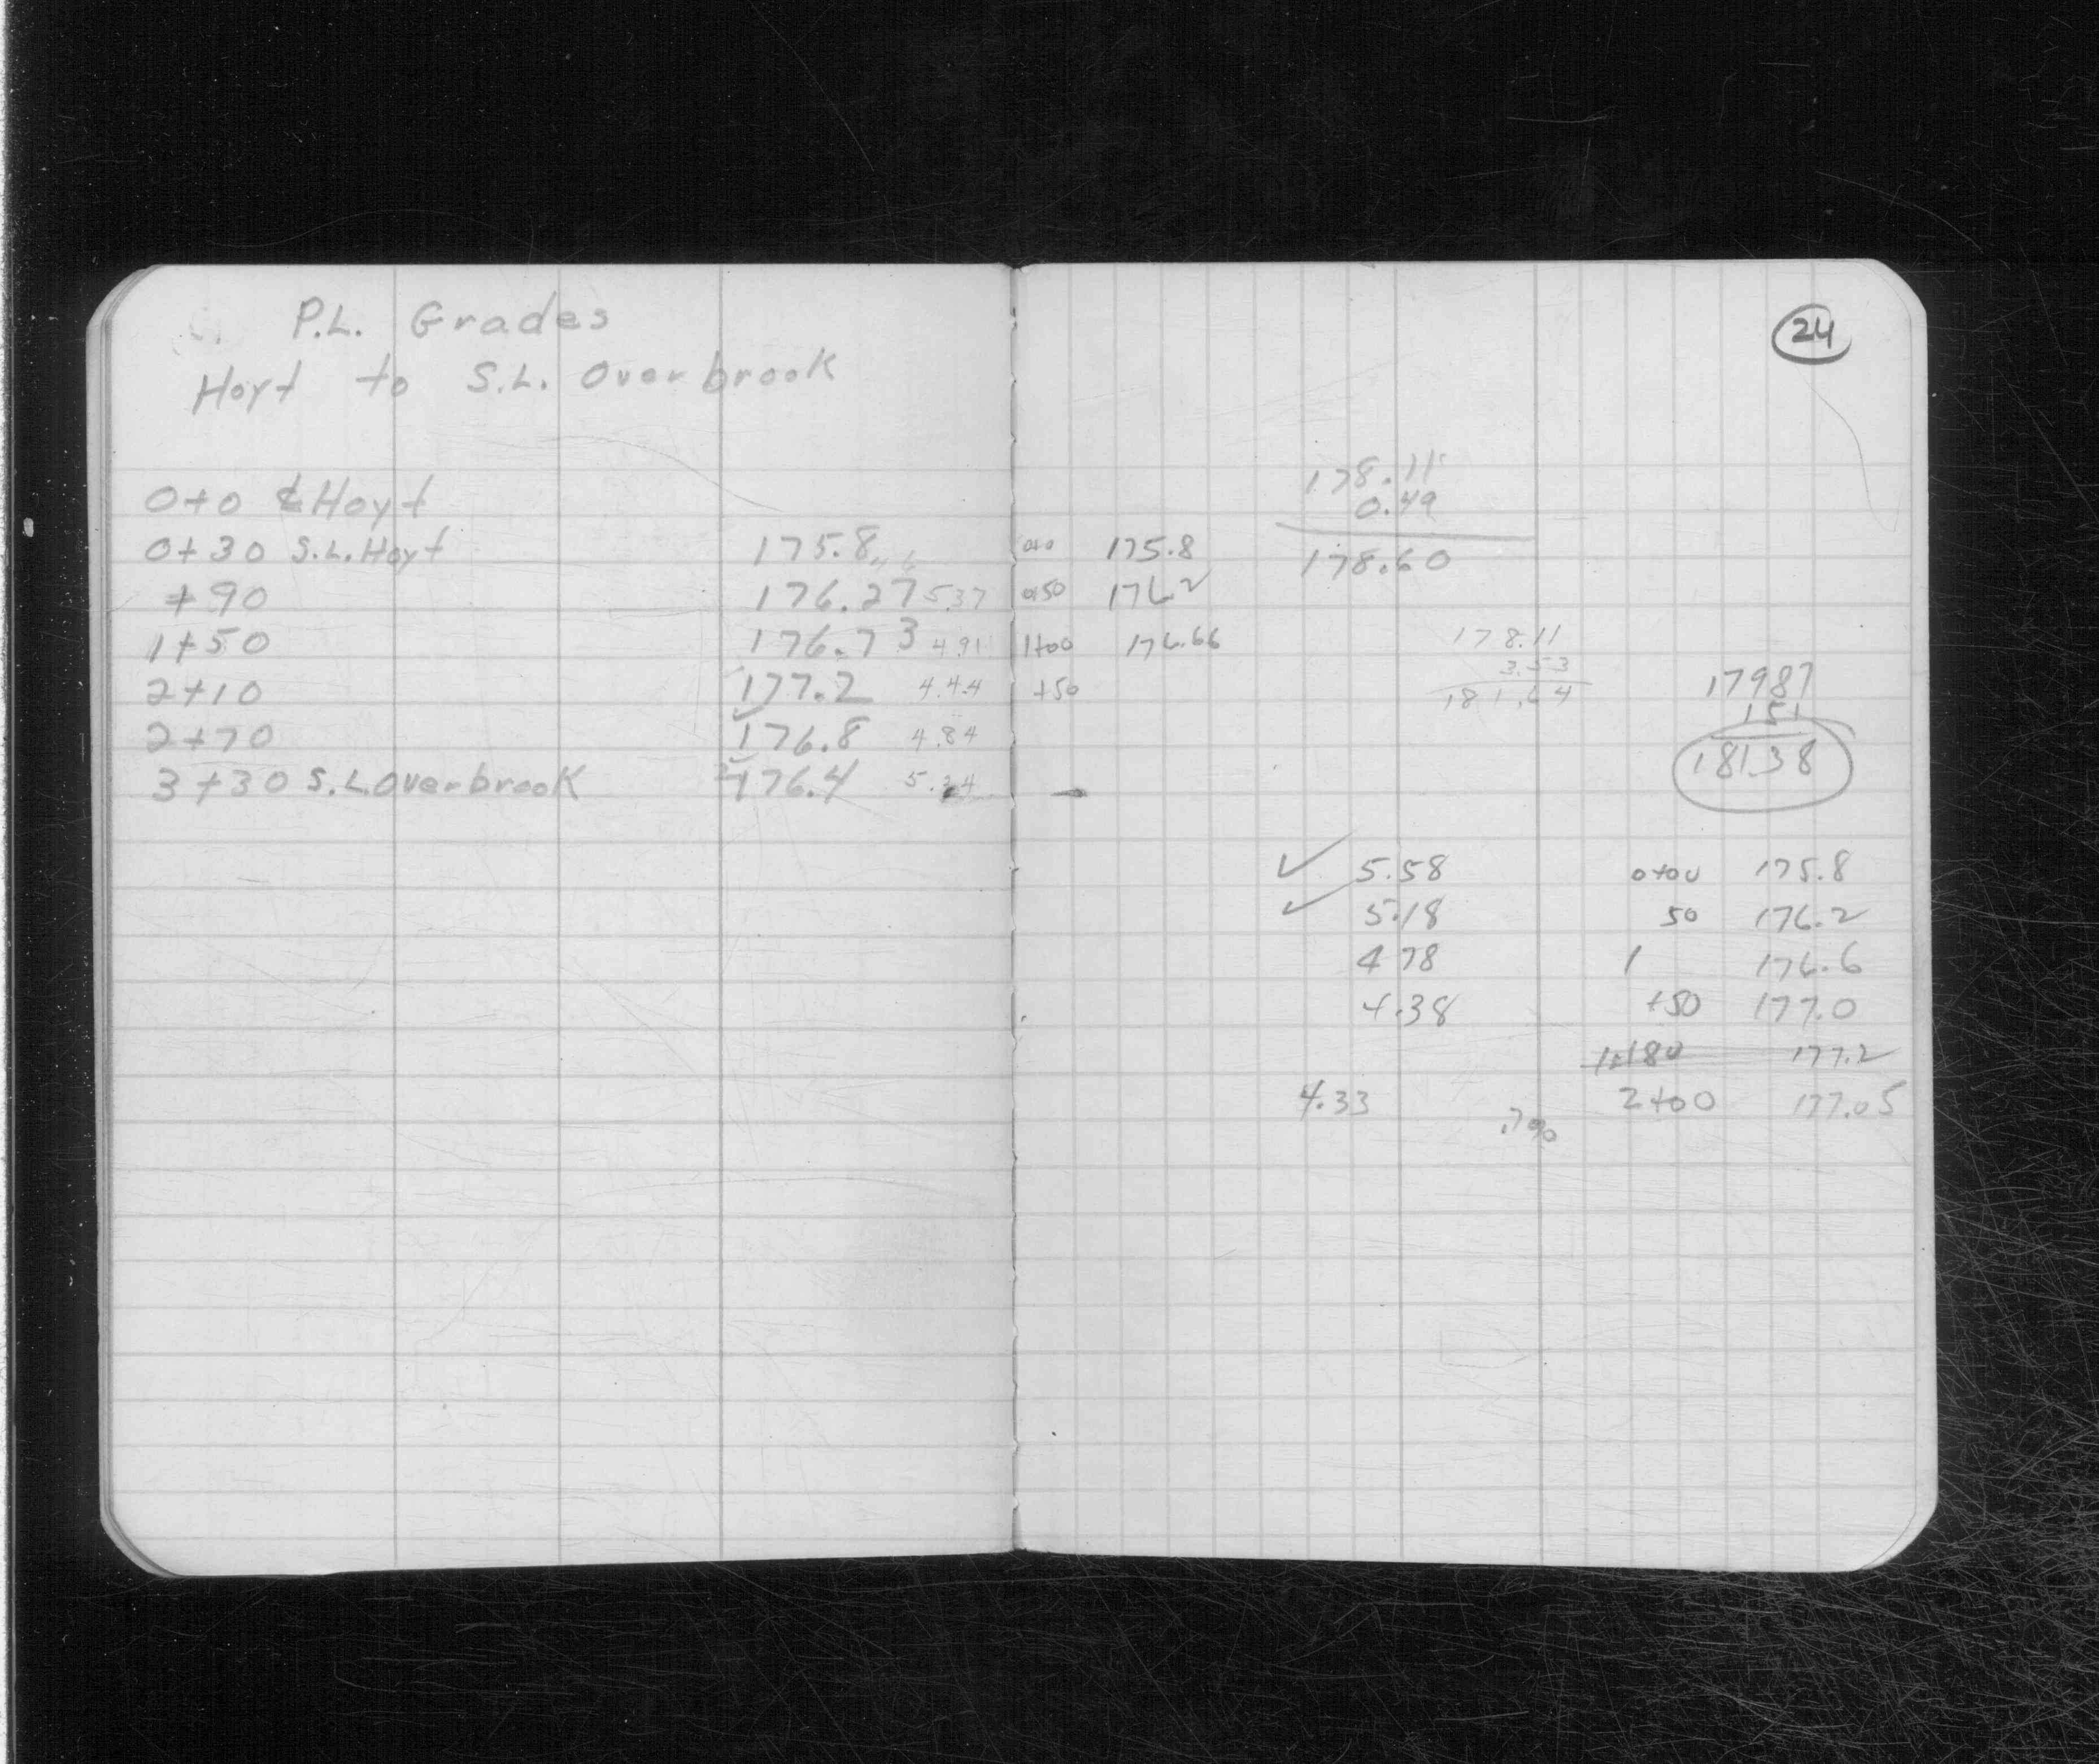 P.L. Grades
Hoyt to S.L. Overbrook
0+0 ℄ Hoyt
0+30 S.L. Hoyt 175.8
+90 176.27 5.37
1+50 176.73 4.91
2+10 177.2 4.44
2+70 176.8 4.84
3+30 S.L Overbrook 176.4 5.24
24
178.11
0.49
178.60
0+0 175.8
0+50 176.2
1+00 176.66
+50
178.11
3.53
181.64
17987
151
181.38
✓ 5.58 0+00 175.8
✓ 5.18 50 176.2
4 78 1 176.6
4.38 +50 177.0
1+80 177.2
4.33 2+00 177.05
.7%